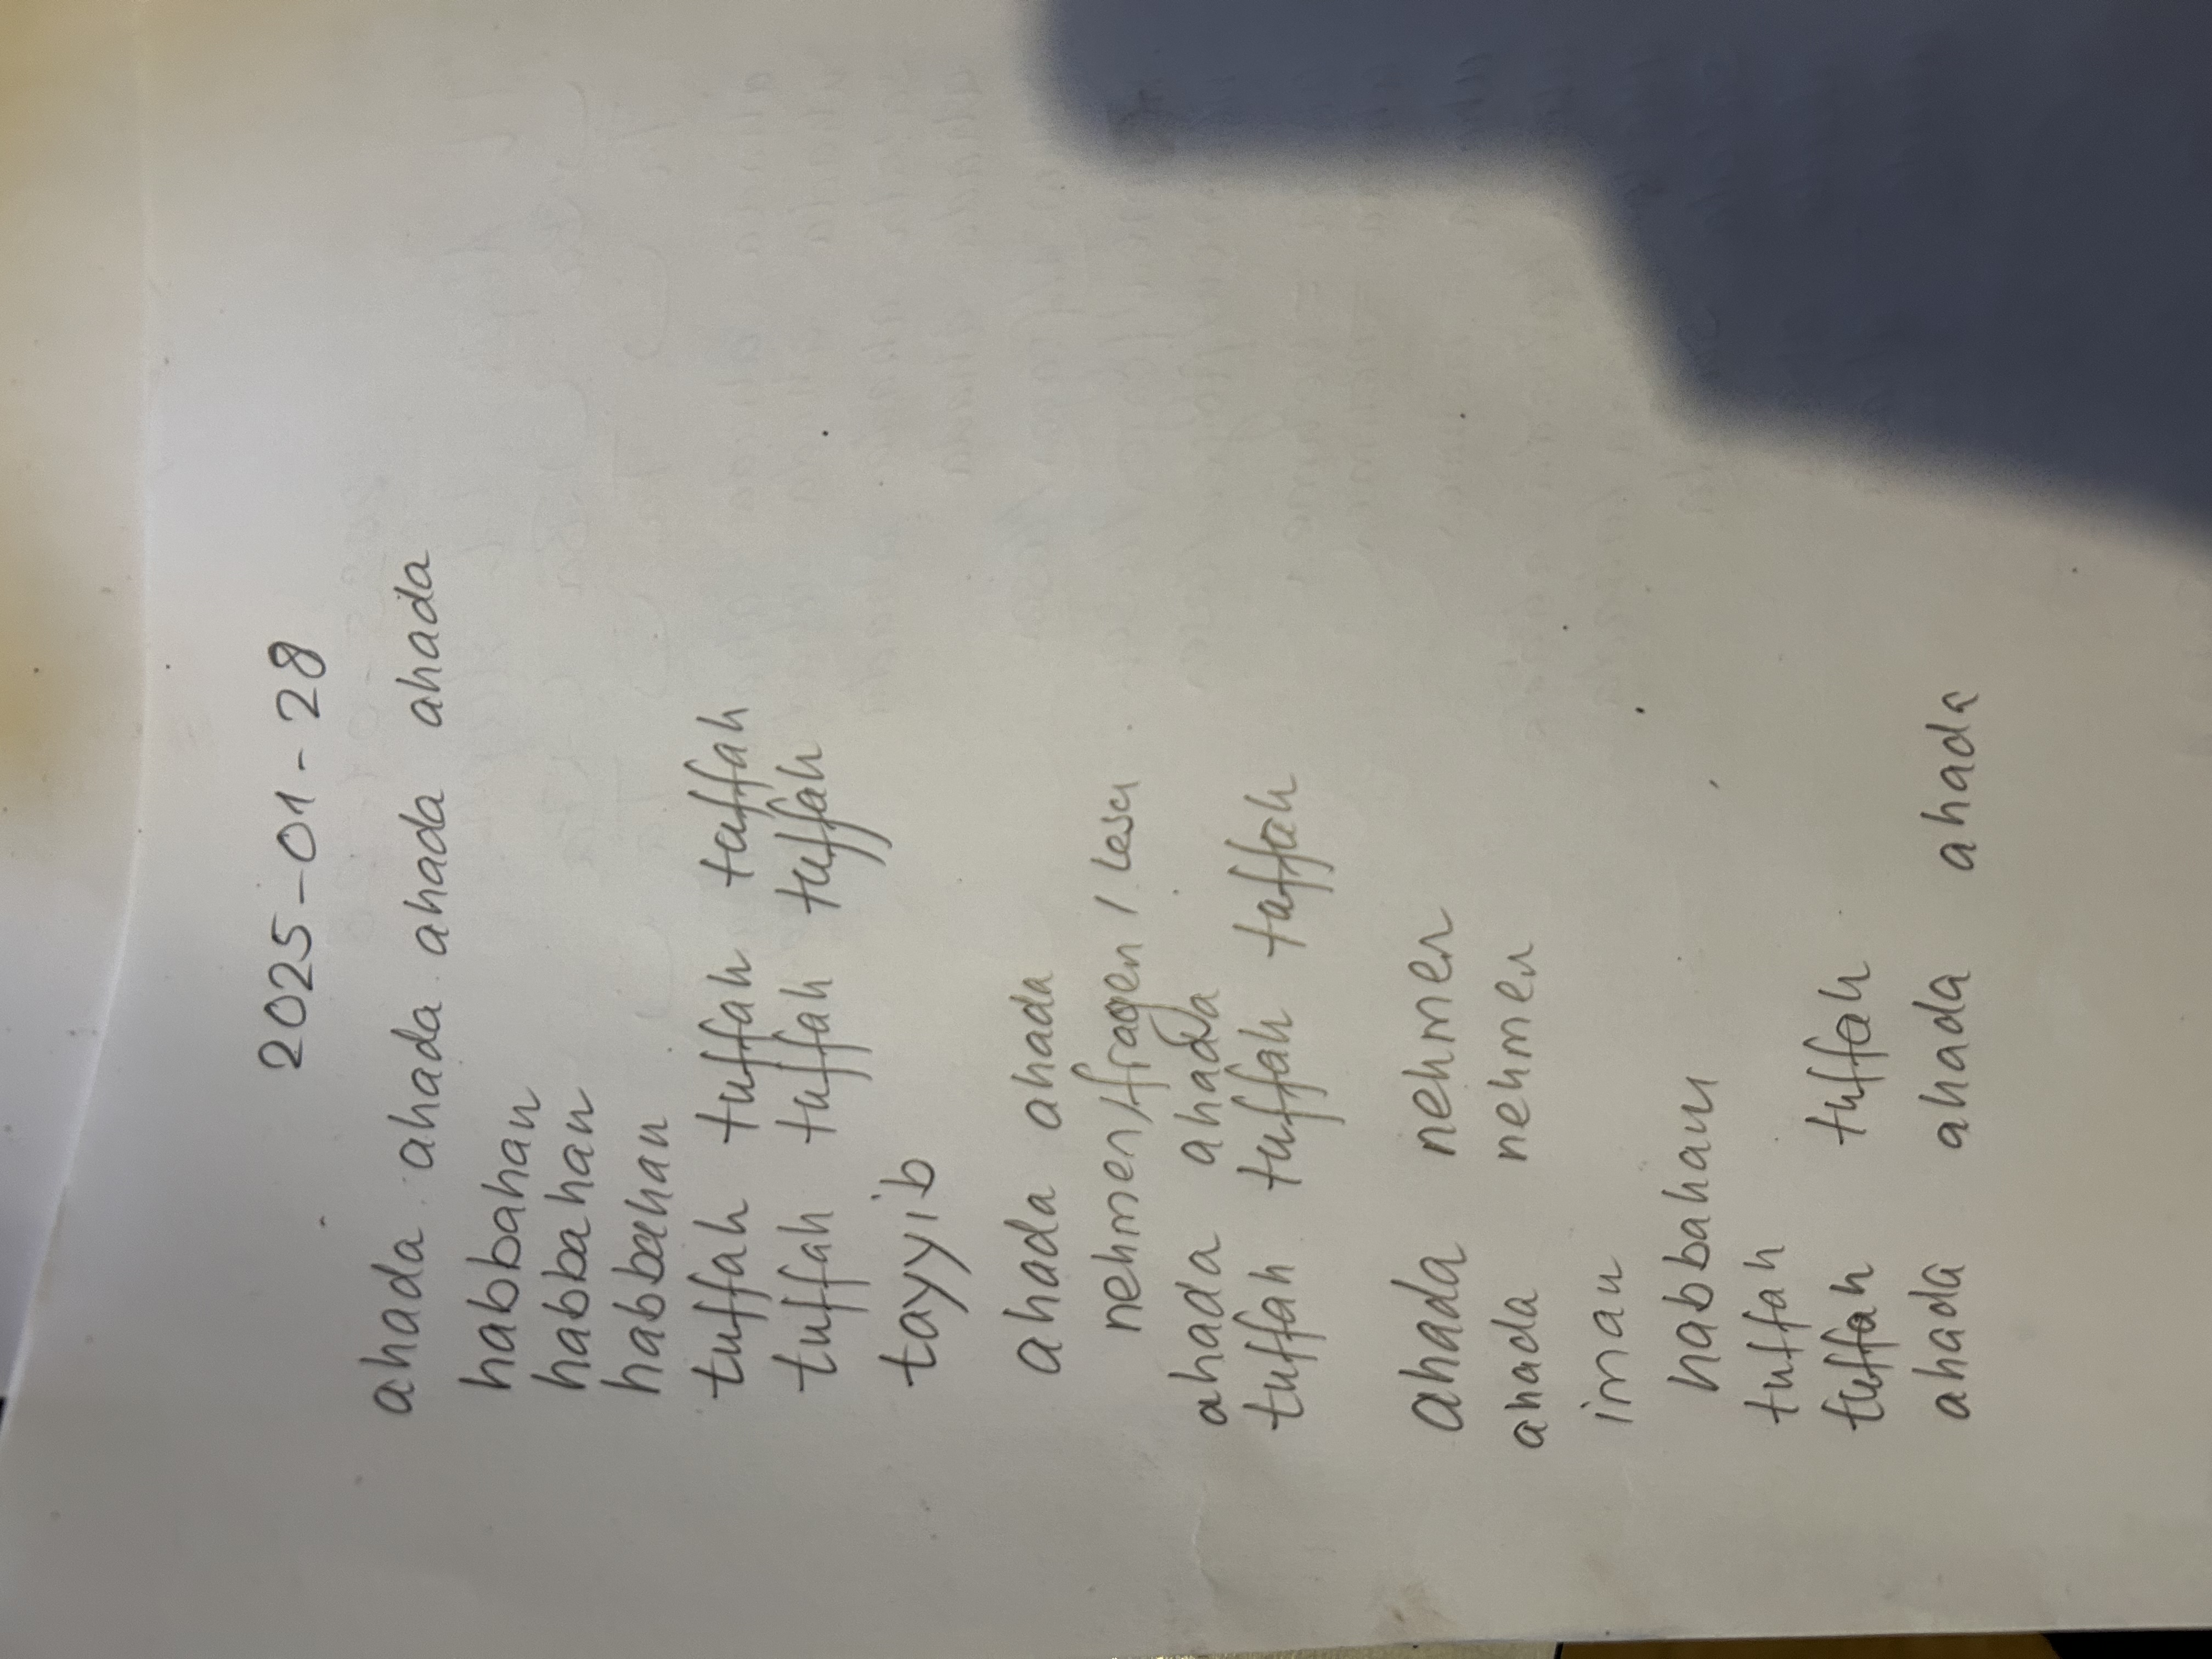 2025-01-28
ahada ahada ahada ahada ahada
habbahan
habbahan
habbahan
tuffah tuffah tuffah tuffah
tuffah tuffah tuffah tuffah
tayyib
ahada ahada ahada
nehmen/fragen/lesen
ahada ahada ahada
tuffah tuffah tuffah taffah
ahada nehmen
ahada nehmen
iman
habbahan
tuffah
tuffah tuffah
ahada ahada ahada ahada